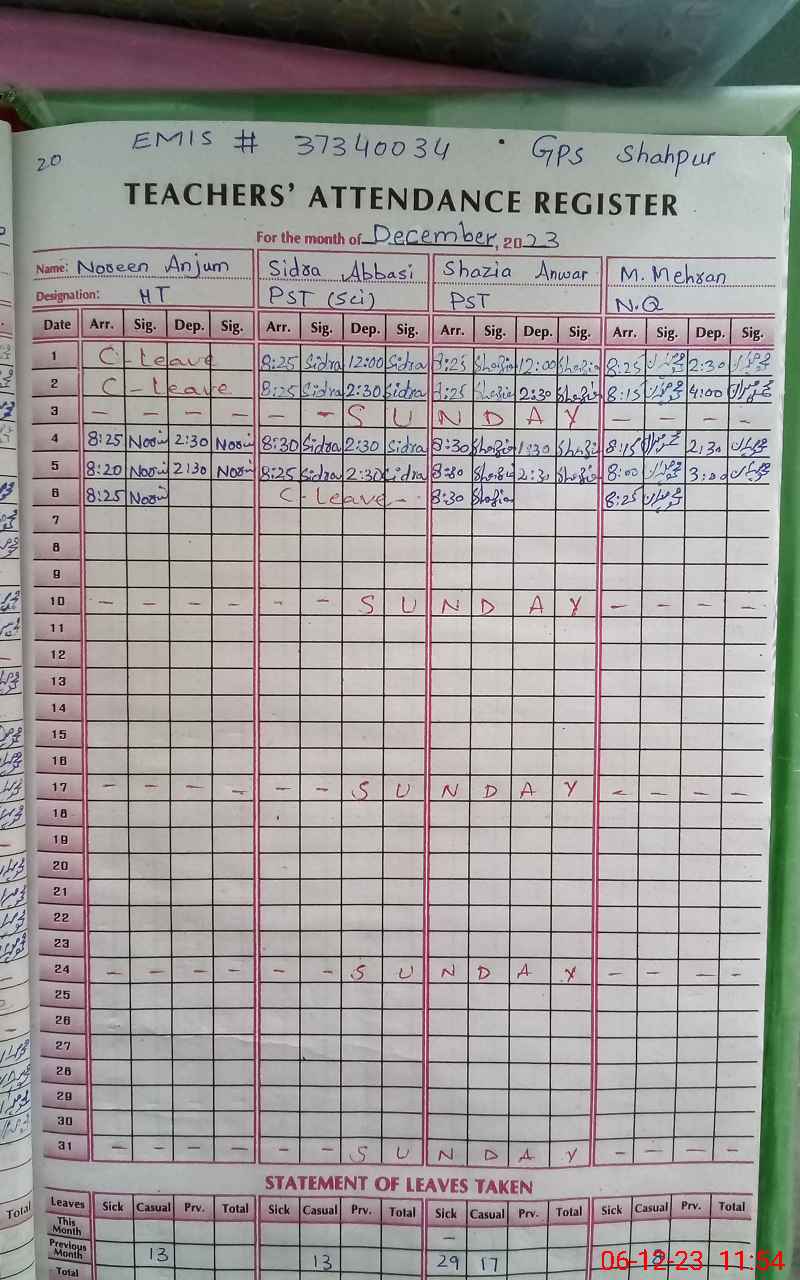 20 EMIS # 37340034 · GPS Shahpur
TEACHERS' ATTENDANCE REGISTER
For the month of December, 2023
Name: Noreen Anjum Sidra Abbasi Shazia Anwar M. Mehran
Designation: HT PST (Sci) PST N.Q
Date Arr. Sig. Dep. Sig. Arr. Sig. Dep. Sig. Arr. Sig. Dep. Sig. Arr. Sig. Dep. Sig.
1 C - Leave 8:25 Sidra 12:00 Sidra 8:25 Shazia 12:00 Shazia 8:25 2:30
2 C - Leave 8:25 Sidra 2:30 Sidra 8:25 Shazia 2:30 Shazia 8:15 4:00
3 - - - - - - S U N D A Y - - - -
4 8:25 2:30 8:30 Sidra 2:30 Sidra 8:30 Shazia 1:30 Shazia 8:15 2:30
5 8:20 2:30 8:25 Sidra 2:30 Sidra 8:30 Shazia 2:3 Shazia 8:00 3:00
6 8:25 C - Leave - - 8:30 Shazia 8:25
7
8
9
10 - - - - - - S U N D A Y - - - -
11
12
13
14
15
16
17 - - - - - - S U N D A Y - - - -
18
19
20
21
22
23
24 - - - - - - S U N D A Y - - - -
25
26
27
28
29
30
31 - - - - - - S U N D A Y - - - -
STATEMENT OF LEAVES TAKEN
Leaves Sick Casual Prv. Total Sick Casual Prv. Total Sick Casual Prv. Total Sick Casual Prv. Total
This Month -
Previous Month 13 13 29 17
Total
Total
06-12-23 11:54